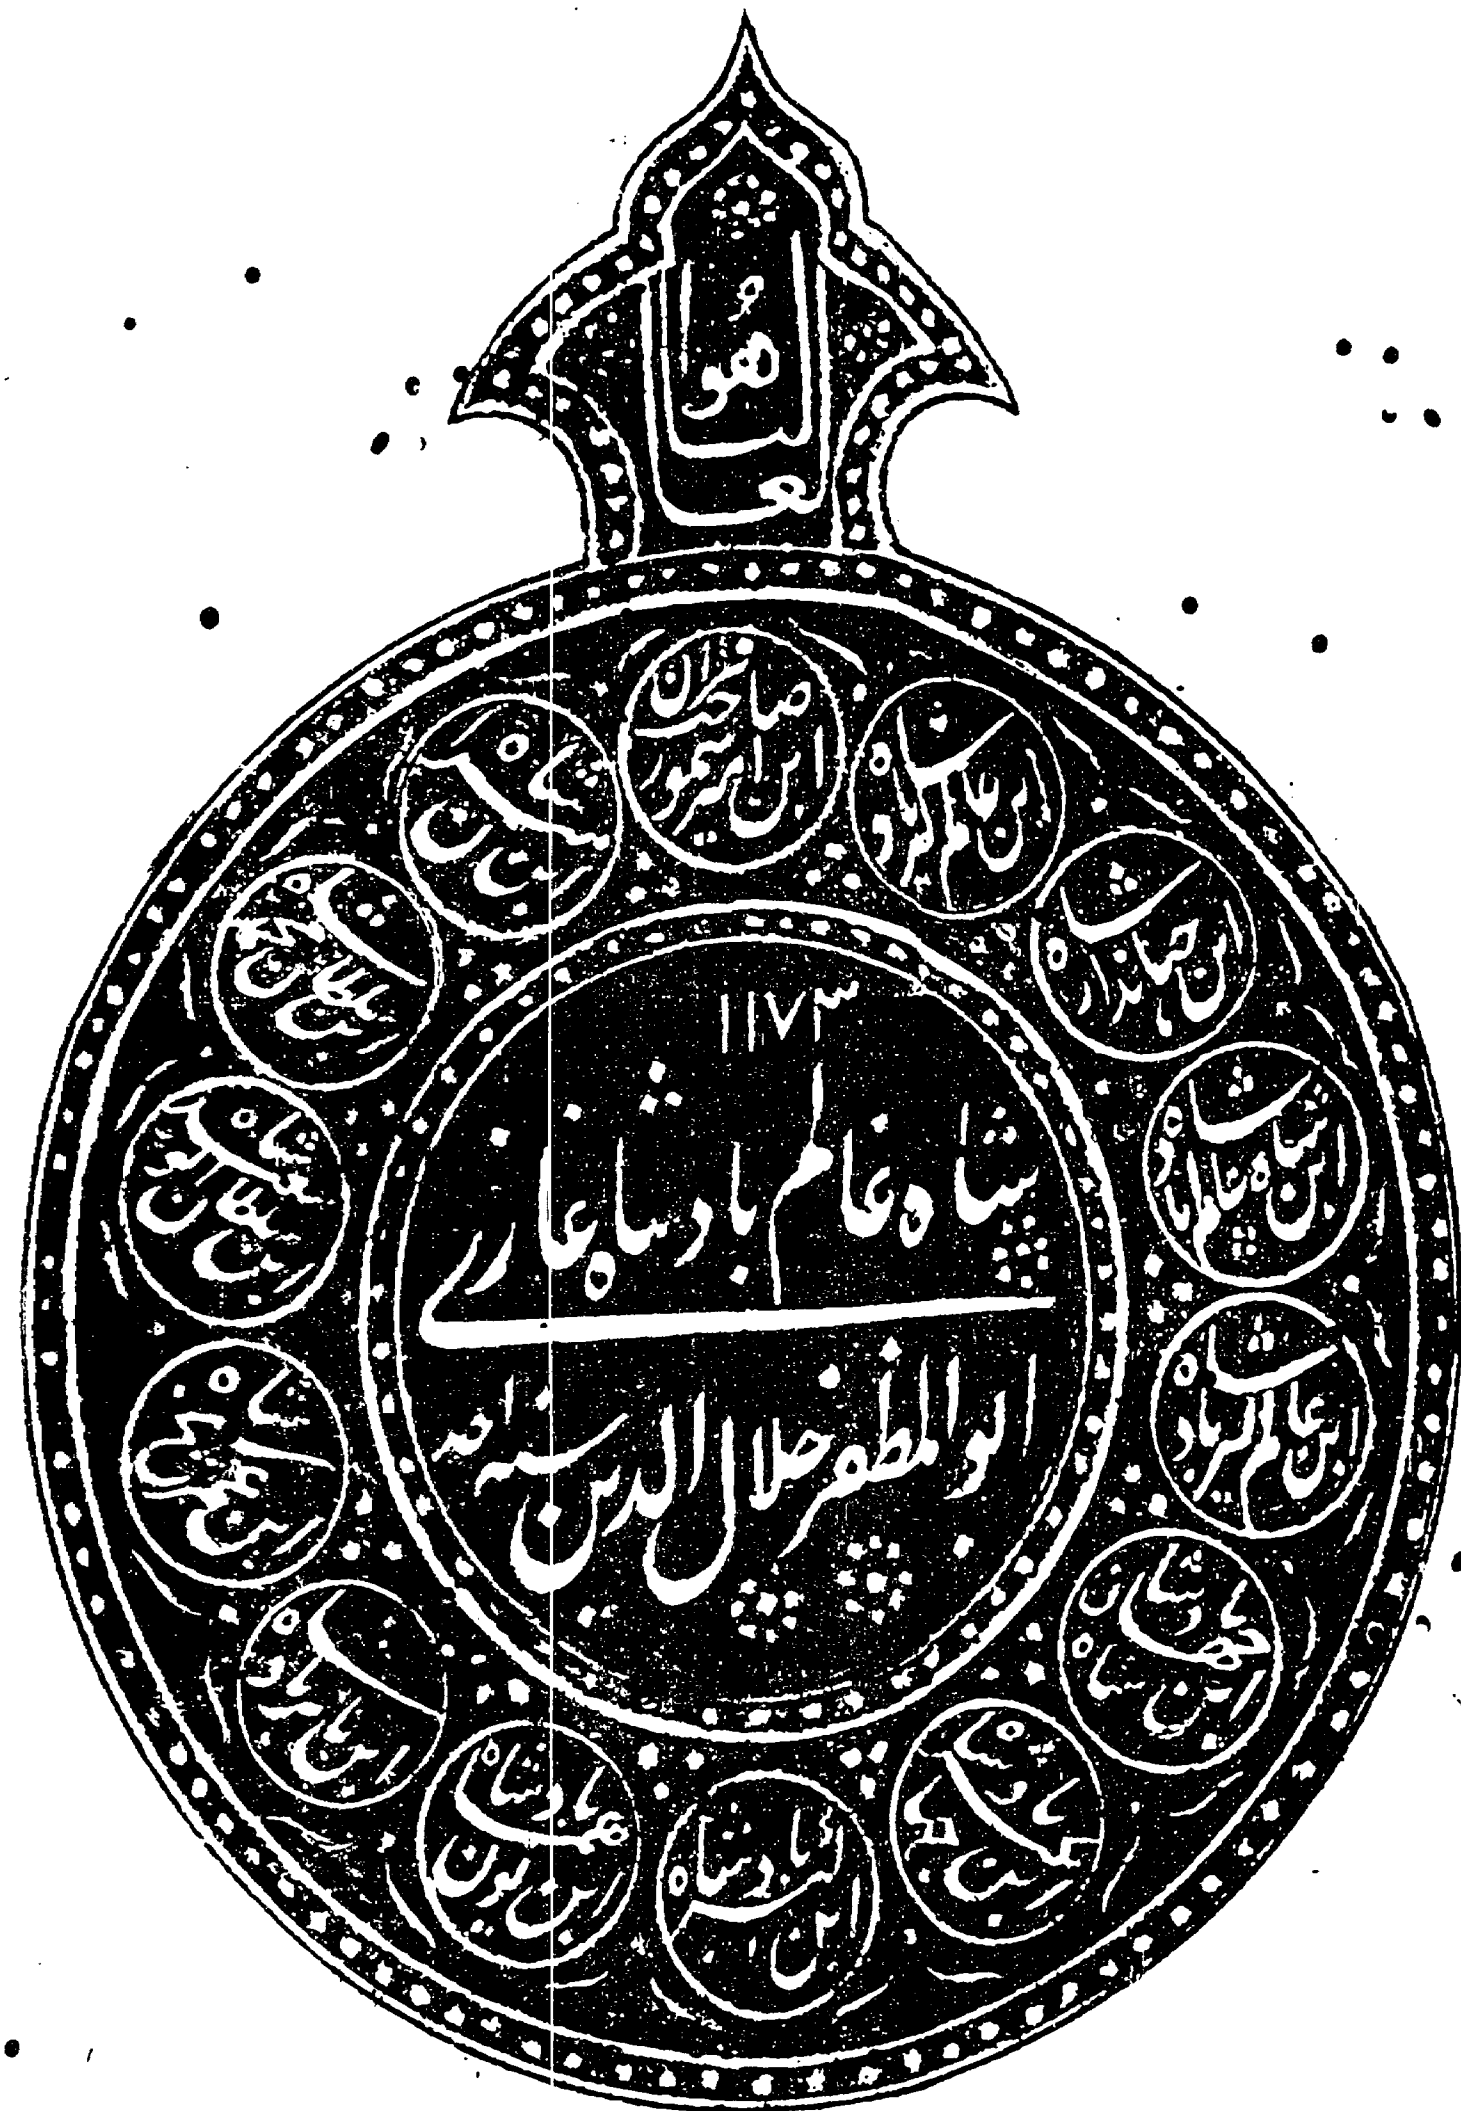 هو
تعالى
۱۱۷۳
شاه عالم بادشاه غازے
ابو المظفر جلال الدین سنه احد
ابن عالمگیر بادشاه
ابن جهاندار شاه
ابن شاه عالم بادشاه
ابن عالمگیر بادشاه
ابن شاه جهان بادشاه
ابن جهانگیر بادشاه
ابن اکبر بادشاه
ابن همایون بادشاه
ابن بابر بادشاه
ابن عمر شیخ شاه
ابن سلطان ابو سعید شاه
ابن سلطان محمد شاه
ابن میران شاه
ابن امیر تیمور
صاحبقران